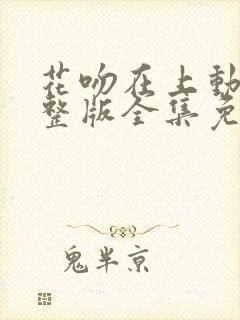 花吻在上動
整版全集免
鬼半京